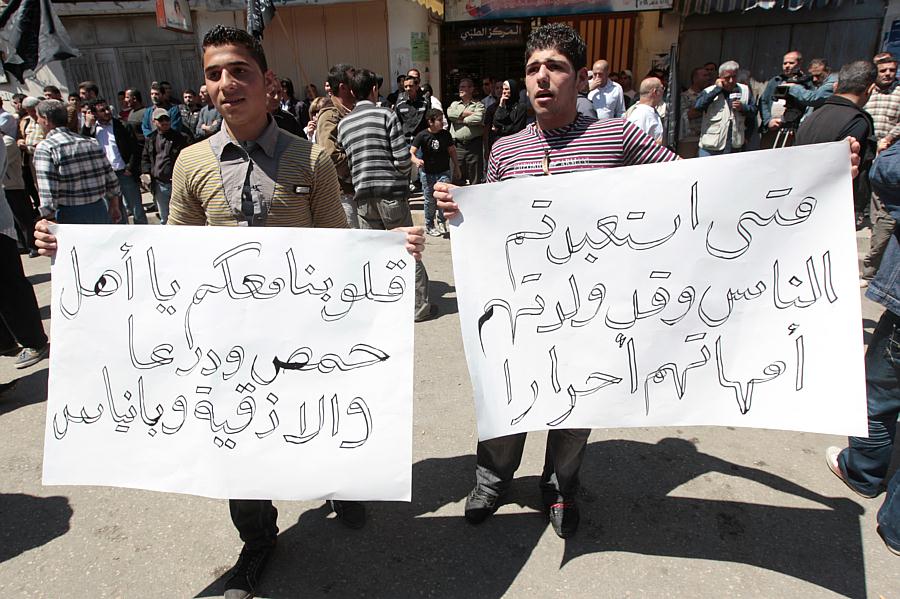 المركز الطبي
قلوبنا معكم يا أهل
حمص ودرعا
والاذقية وبانياس
فتى استعبدتم
الناس وقد ولدتهم
أمهاتهم أحرارا